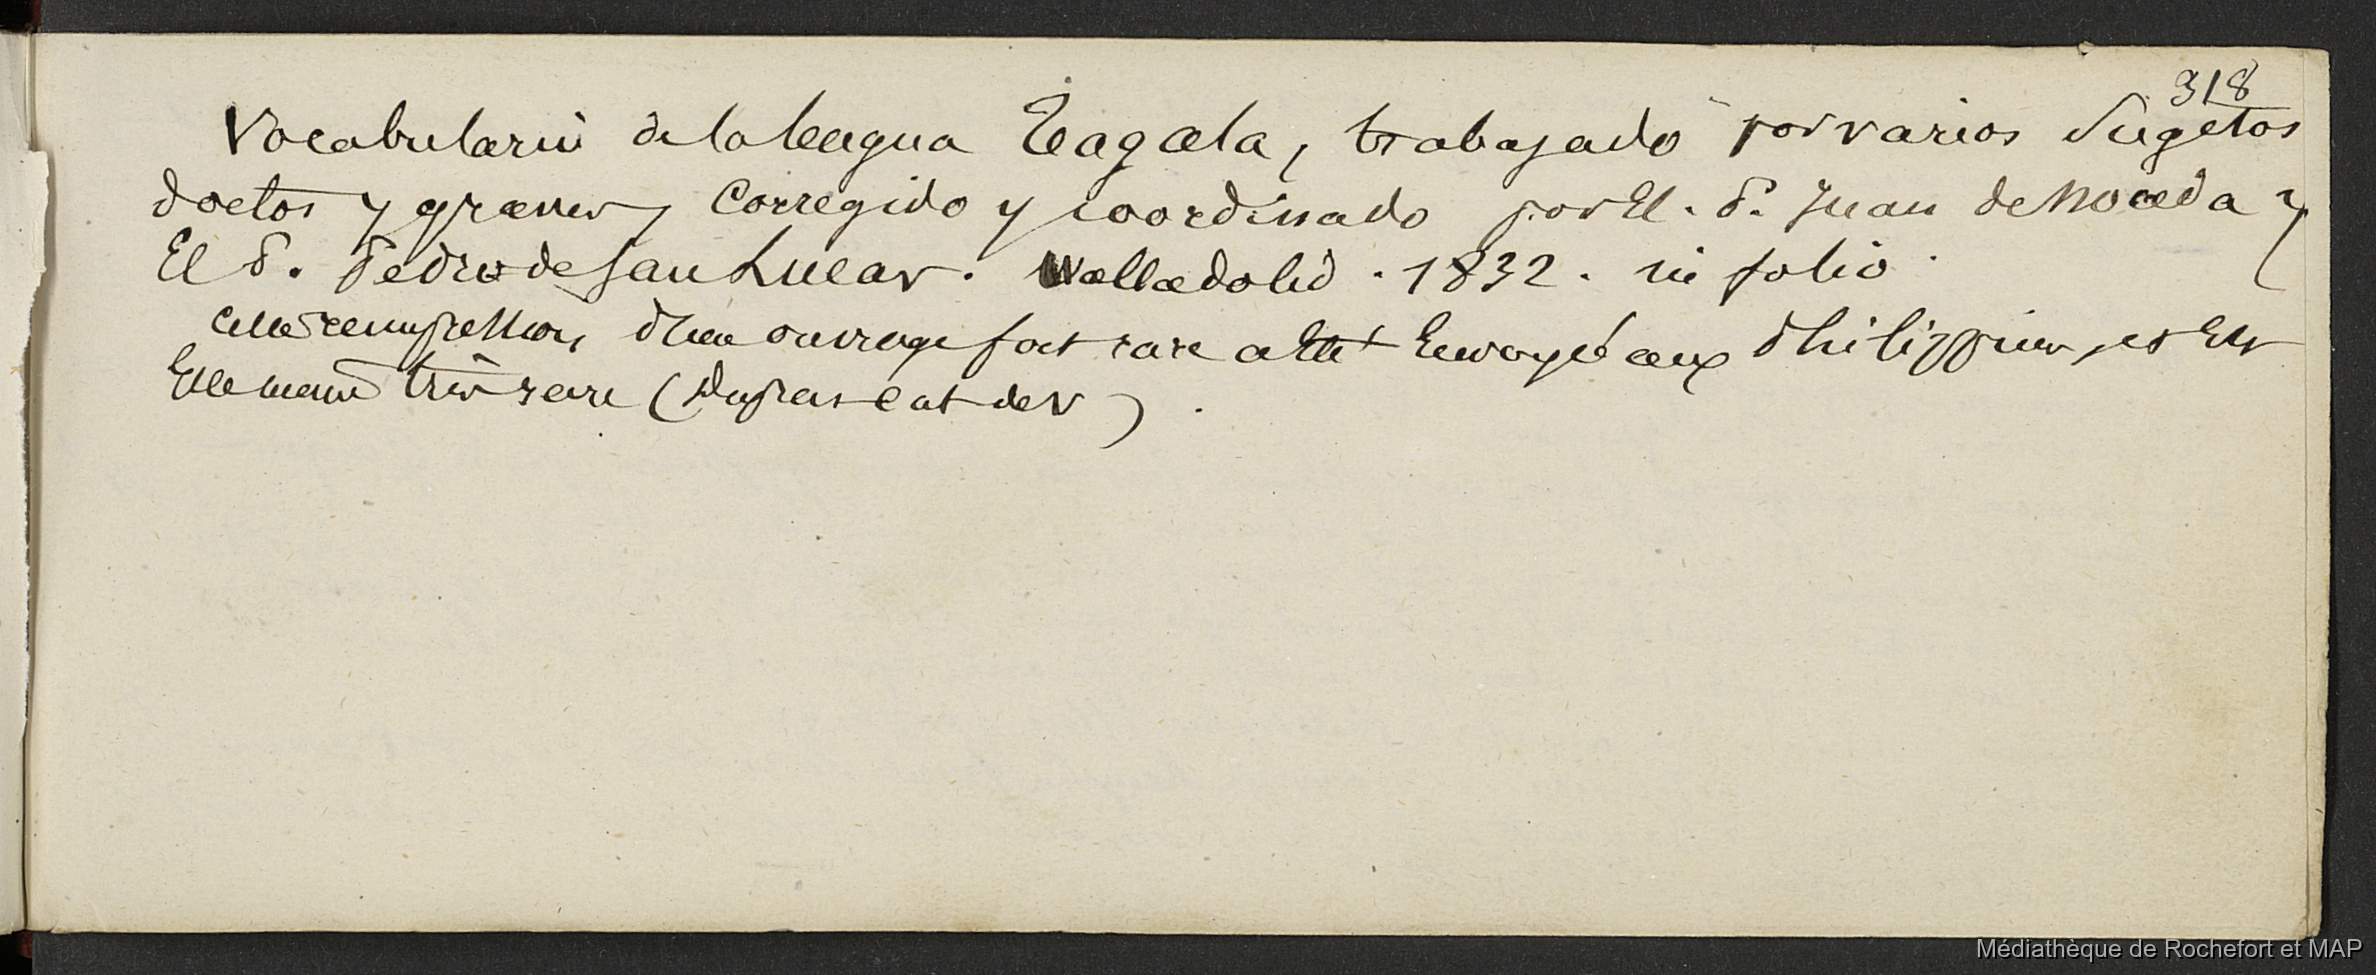 318
Vocabulario de la lengua Tagala, trabajado por varios Sugetos
doctos y graves, Corregido y coordinado por El. P. Juan de Noceda y
El P. Pedro de San Lucar. Valladolid. 1832. in folio.
Cette reimpression, d'un ouvrage fort rare a été Envoyé aux Philippines, et Est
Elle meme très rare (Duprat cat der).
Médiathèque de Rochefort et MAP